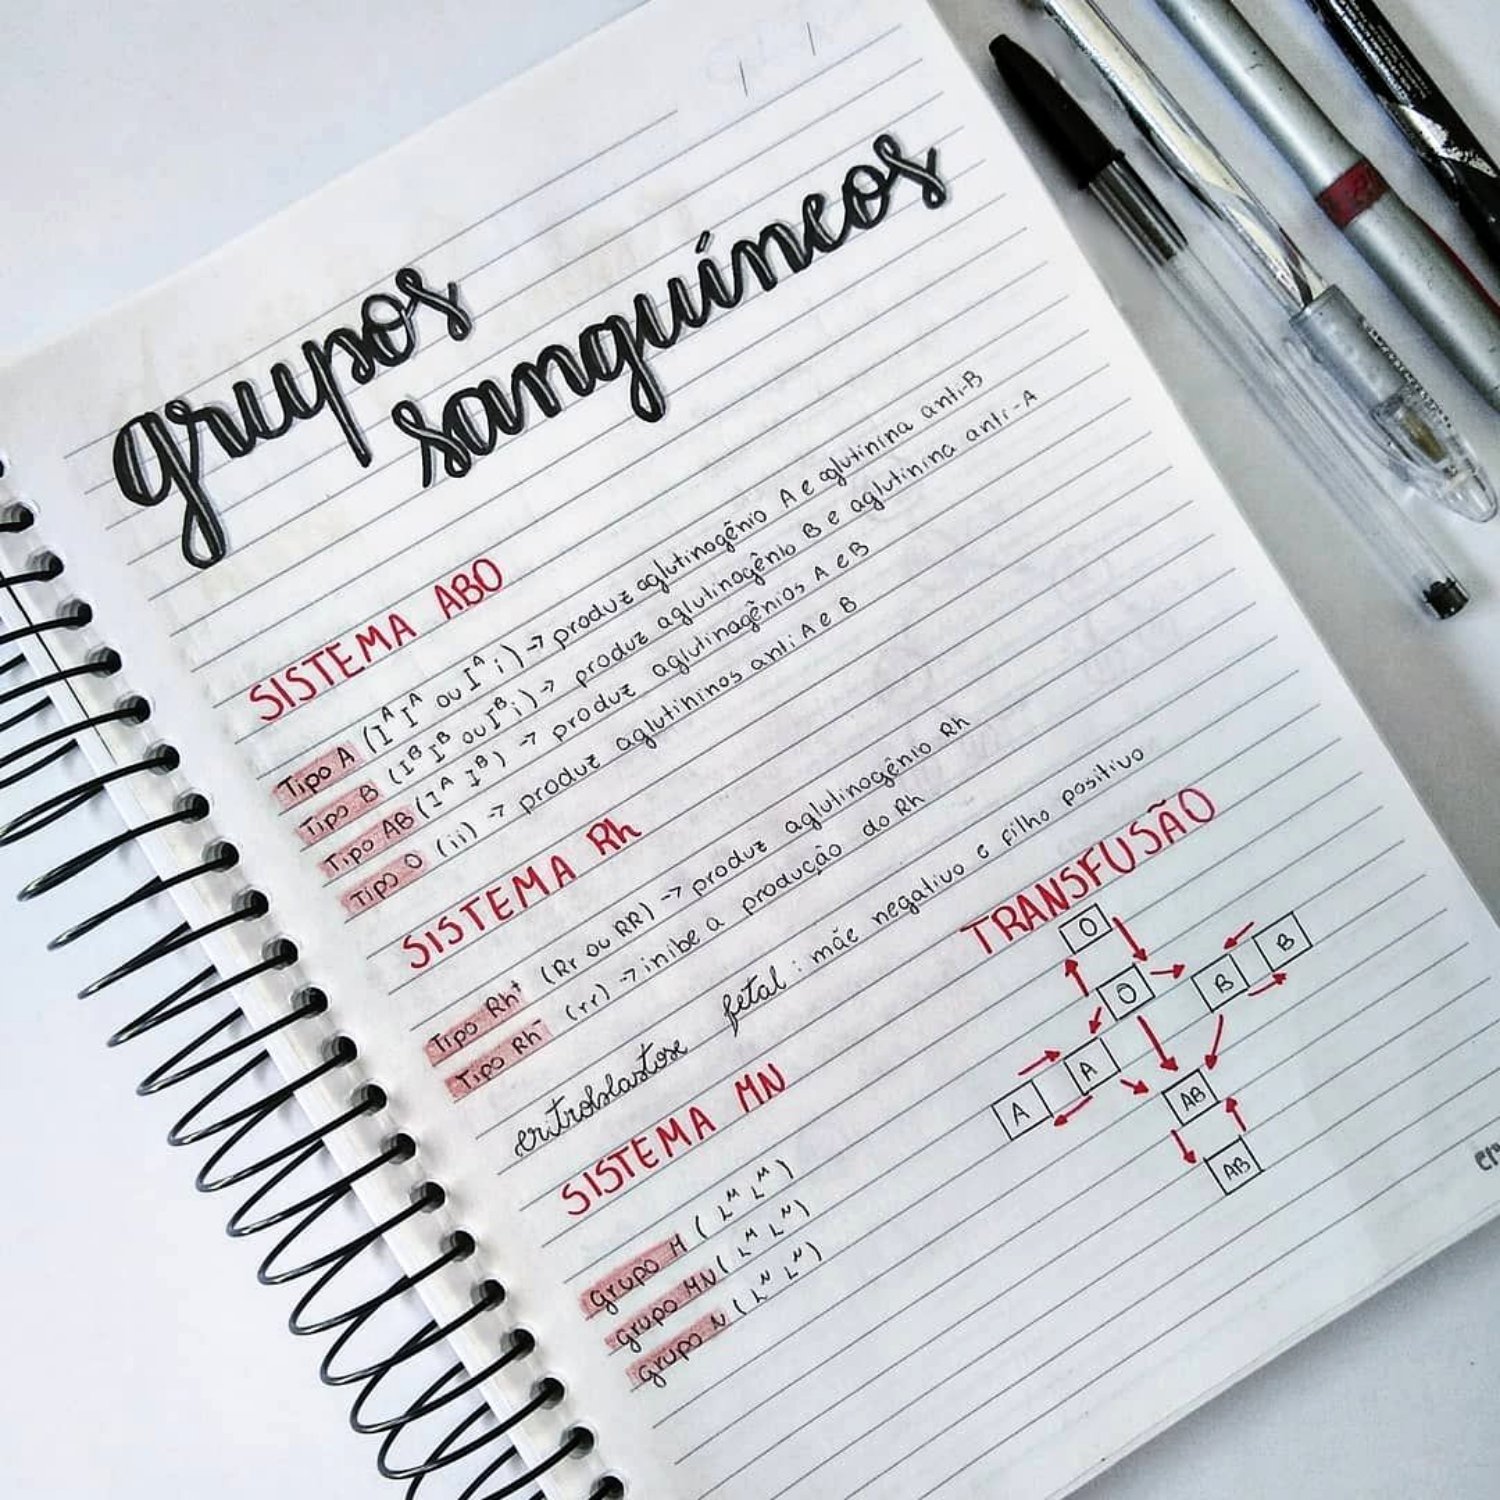 grupos
sanguíneos
SISTEMA ABO
Tipo A (I^A I^A ou I^A i) → produz aglutinogênio A e aglutinina anti-B
Tipo B (I^B I^B ou I^B i) → produz aglutinogênio B e aglutinina anti-A
Tipo AB (I^A I^B) → produz aglutinagênios A e B
Tipo O (ii) → produz aglutininos anti A e B
SISTEMA Rh
Tipo Rh⁺ (Rr ou RR) → produz aglutinogênio Rh
Tipo Rh⁻ (rr) → inibe a produção do Rh
eritroblastose fetal: mãe negativo e filho positivo
SISTEMA MN
grupo M (L^M L^M)
grupo MN (L^M L^N)
grupo N (L^N L^N)
TRANSFUSÃO
O
O
B
B
A
A
AB
AB